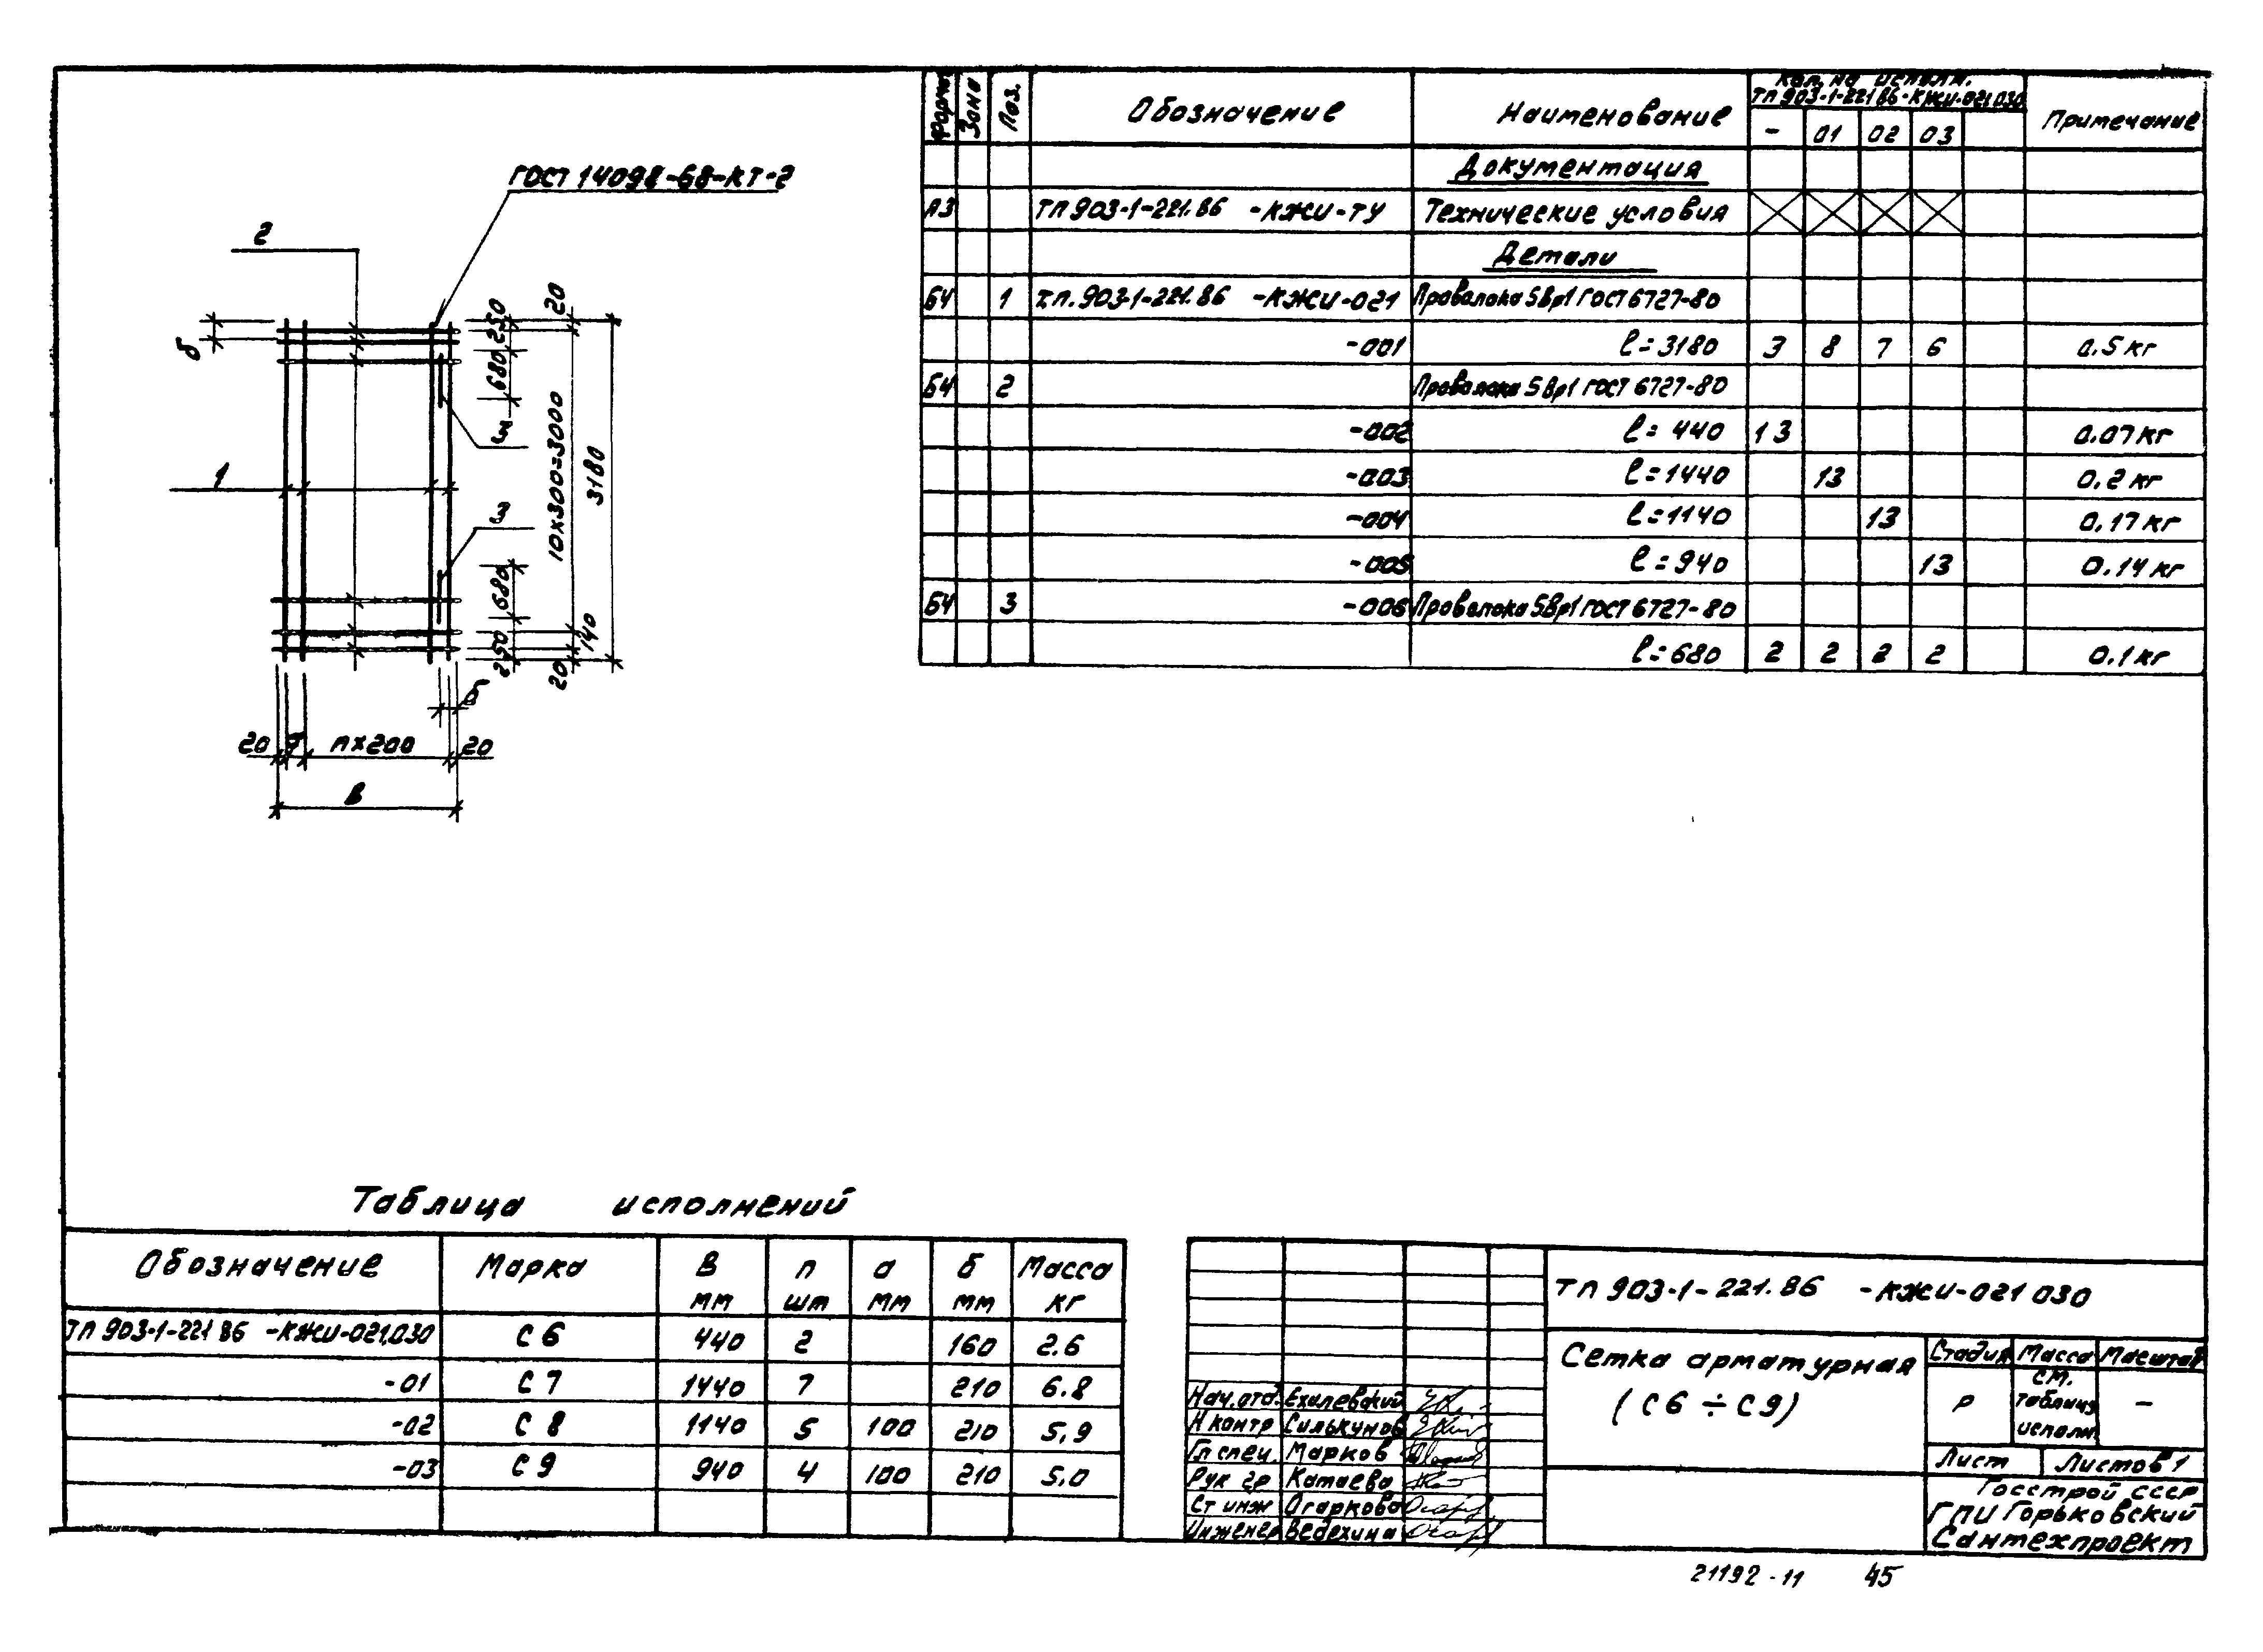 ГОСТ 14098-68-КТ-2
2
б
250
20
680
3
10х300=3000
3180
1
3
680
140
250
20
б
20 а nх200 20
В
Форма Зона Поз. Обозначение Наименование Кол. на исполн. Примечание
ТП 903-1-221 86-КЖИ-021.030
- 01 02 03
Документация
А3 ТП 903-1-221.86 -КЖИ-ТУ Технические условия
Детали
БЧ 1 т.п. 903-1-221.86 -КЖИ-021 Проволока 5Вр1 ГОСТ 6727-80
-001 ℓ=3180 3 8 7 6 0.5 кг
БЧ 2 Проволока 5Вр1 ГОСТ 6727-80
-002 ℓ= 440 13 0.07 кг
-003 ℓ=1440 13 0.2 кг
-004 ℓ=1140 13 0.17 кг
-005 ℓ=940 13 0.14 кг
БЧ 3 -006 Проволока 5Вр1 ГОСТ 6727-80
ℓ=680 2 2 2 2 0.1 кг
Таблица исполнений
Обозначение Марка В мм n шт а мм б мм Масса кг
ТП 903-1-221 86 -КЖИ-021.030 С 6 440 2 160 2.6
-01 С 7 1440 7 210 6.8
-02 С 8 1140 5 100 210 5,9
-03 С 9 940 4 100 210 5,0
ТП 903-1-221.86 -КЖИ-021 030
Сетка арматурная
(С6 ÷ С9)
Стадия Масса Масштаб
Р см. таблицу исполн. -
Лист Листов 1
Госстрой СССР
ГПИ Горьковский
Сантехпроект
Нач.отд. Ехилевский
Н контр Силькунов
Гл спец. Марков
Рук гр Катаева
Ст инж Огаркова
Инженер Ведехина
21192-11 45